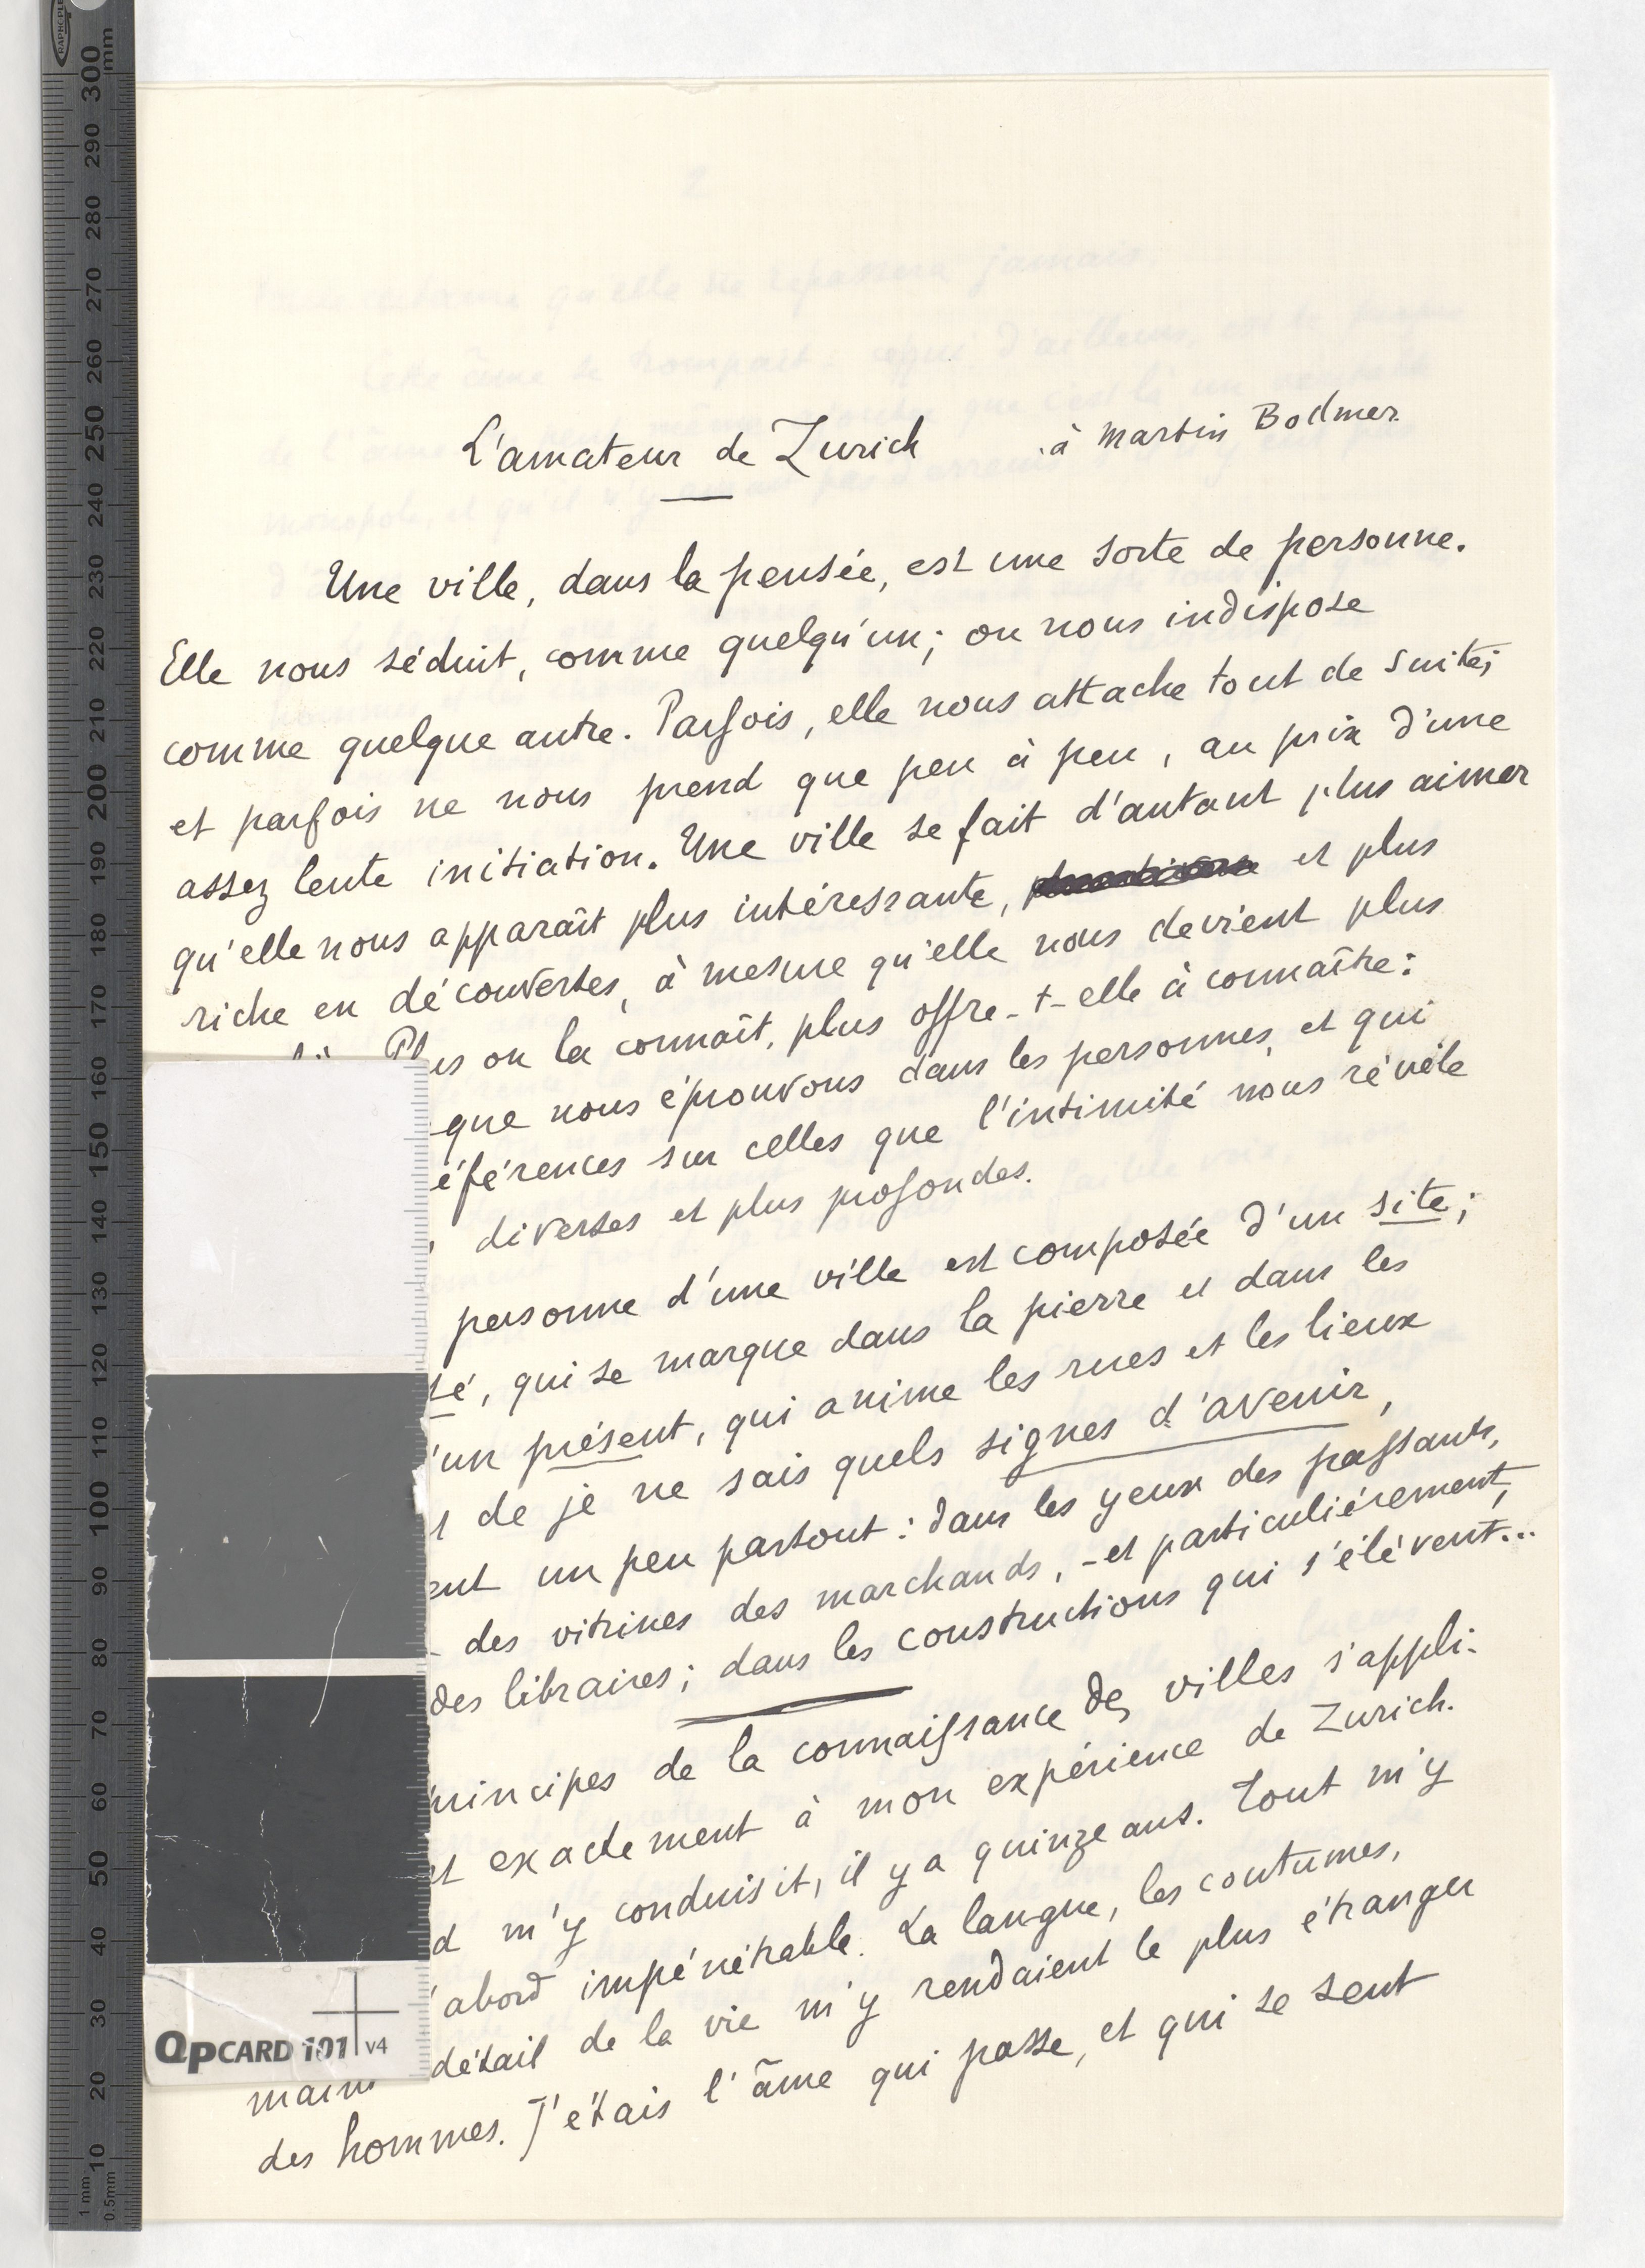 L'amateur de Zurich
à Martin Bodmer
Une ville, dans la pensée, est une sorte de personne.
Elle nous séduit, comme quelqu'un; ou nous indispose
comme quelque autre. Parfois, elle nous attache tout de suite;
et parfois ne nous prend que peu à peu, au prix d'une
assez lente initiation. Une ville se fait d'autant plus aimer
qu'elle nous apparaît plus intéressante, et plus
riche en découvertes, à mesure qu'elle nous devient plus
on la connaît, plus offre-t-elle à connaître:
que nous éprouvons dans les personnes, et qui
éférences sur celles que l'intimité nous révèle
diverses et plus profondes.
personne d'une ville est composée d'un site;
sé, qui se marque dans la pierre et dans les
'un présent, qui anime les rues et les lieux
de je ne sais quels signes d'avenir,
ent un peu partout: dans les yeux des passants,
des vitrines des marchands, - et particulièrement,
des libraires; dans les constructions qui s'élèvent...
rincipes de la connaissance des villes s'appli-
t exactement à mon expérience de Zurich.
d m'y conduisit, il y a quinze ans. Tout m'y
'abord impénétrable. La langue, les coutumes,
maint détail de la vie m'y rendaient le plus étranger
des hommes. J'étais l'âme qui passe, et qui se sent
QPCARD 101 v4
300 mm
290
280
270
260
250
240
230
220
210
200
190
180
170
160
150
140
130
120
110
100
90
80
70
60
50
40
30
20
10
1 mm
0.5mm